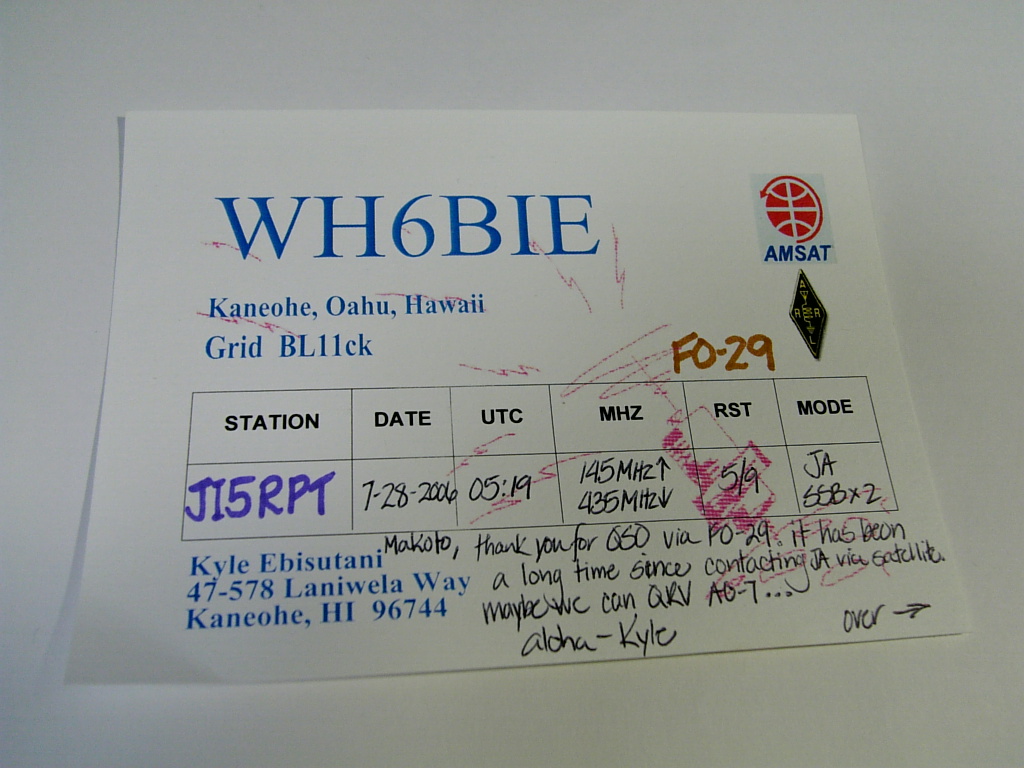 WH6BIE
AMSAT
Kaneohe, Oahu, Hawaii
A
R R
L
Grid BL11ck
FO-29
STATION DATE UTC MHZ RST MODE
JI5RPT 7-28-2006 05:19 145MHz↑ 5/9 JA
435MHz↓ SSBx2
Kyle Ebisutani
47-578 Laniwela Way
Kaneohe, HI 96744
Makoto, thank you for QSO via FO-29. it has been
a long time since contacting JA via satellite.
maybe we can QRV AO-7...
aloha - Kyle
over →